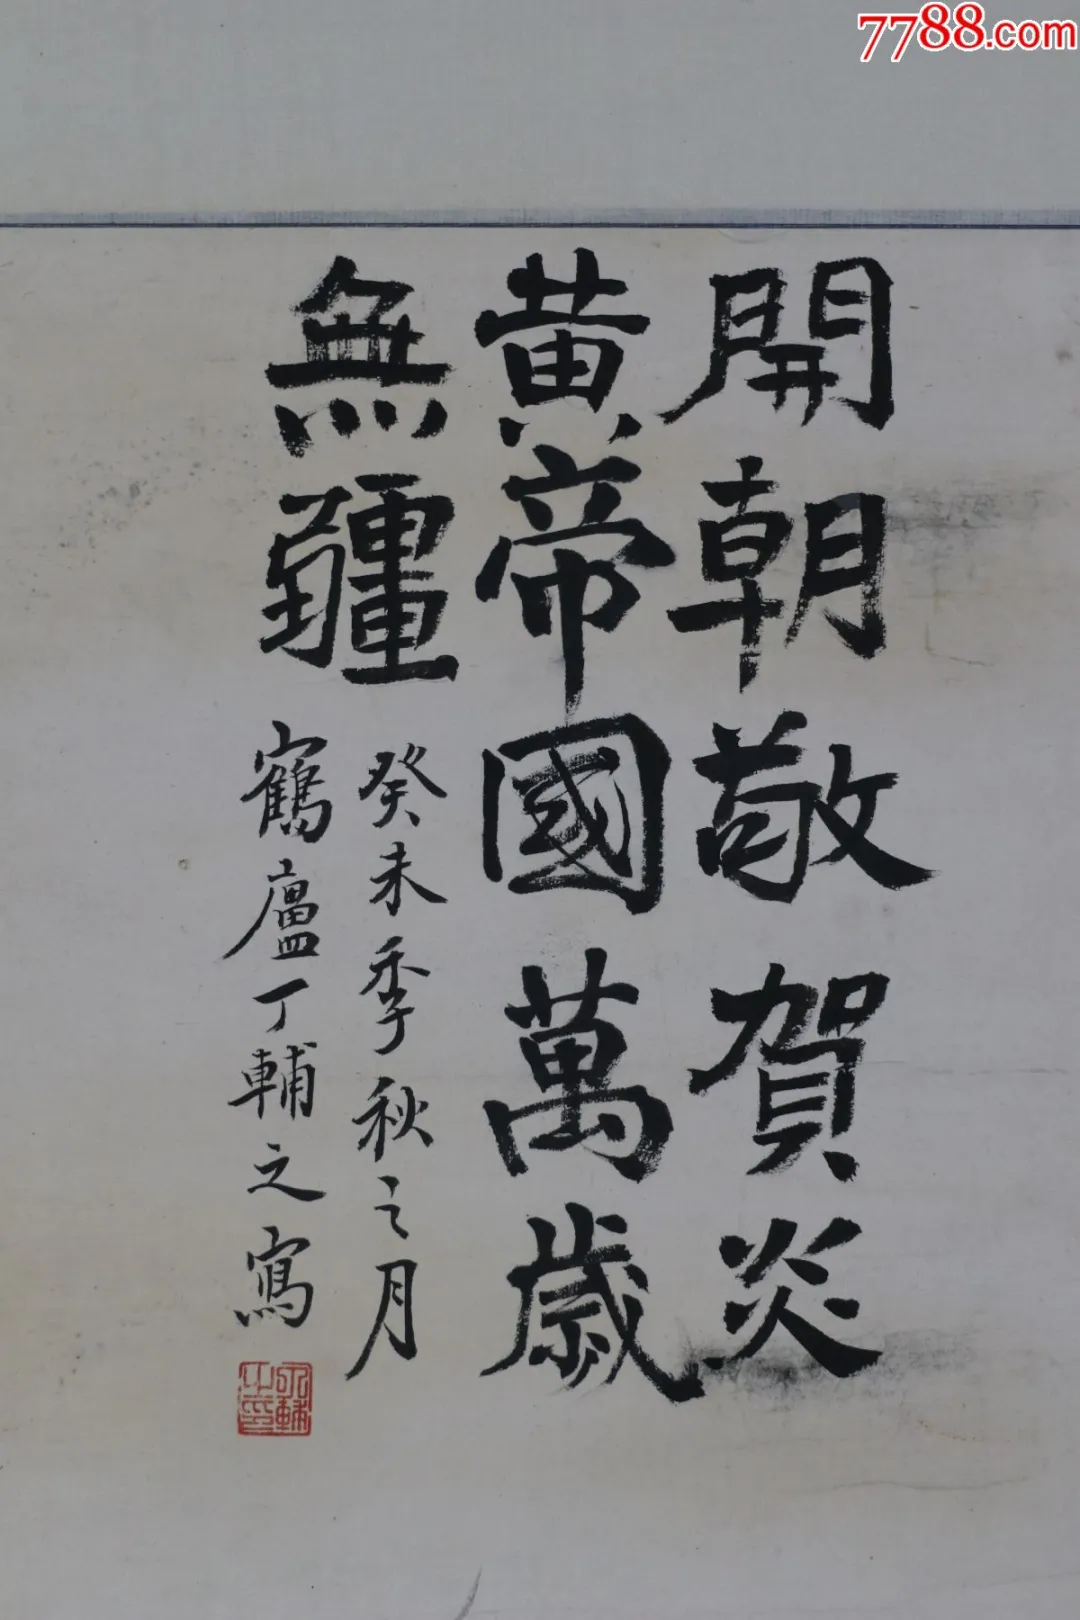 7788.com
開朝敬賀炎
黄帝國萬歲
無疆
癸未季秋之月
鶴廬丁輔之寫